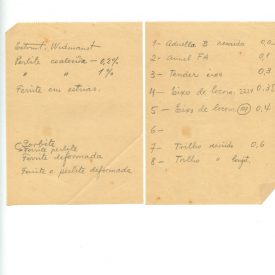 Estrut. Widmanst.
Perlite coalescida - 0,2%
" " 1%
Ferrite em estrias.
Sorbite
Ferrite perlite
Ferrite deformada
Ferrite e perlite deformada
1 - B 0,0
2 - Anel FA " 0,1
3 - Tender eixo 0,3
4 - Eixo de locom. 0,35
5 - Eixos de locom. 0,4
6 -
7 - Trilho 0,6
8 - Trilho " longit.